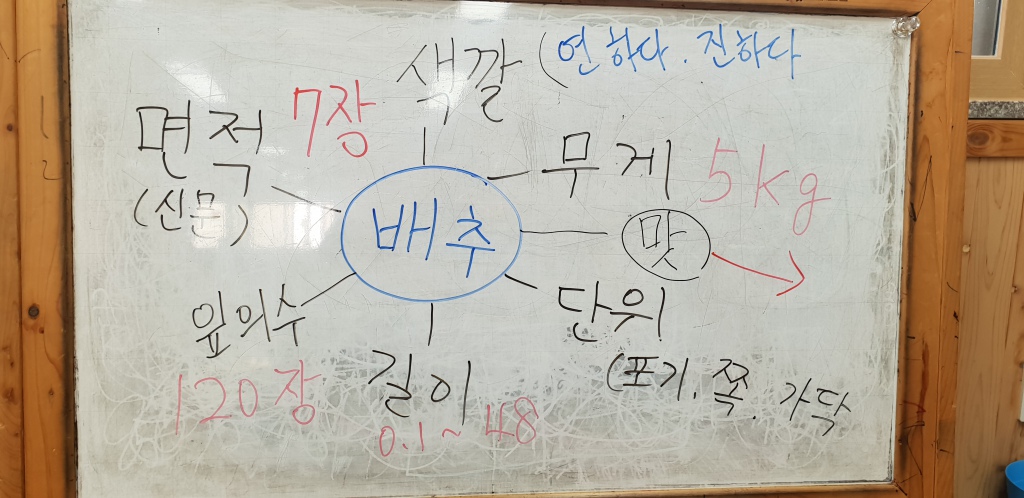 색깔 (연하다. 진하다
면적 7장
(신문)
무게 5kg
배추
맛
잎의수
120장
길이
0.1 ~ 48
단위
(포기. 쪽. 가닥